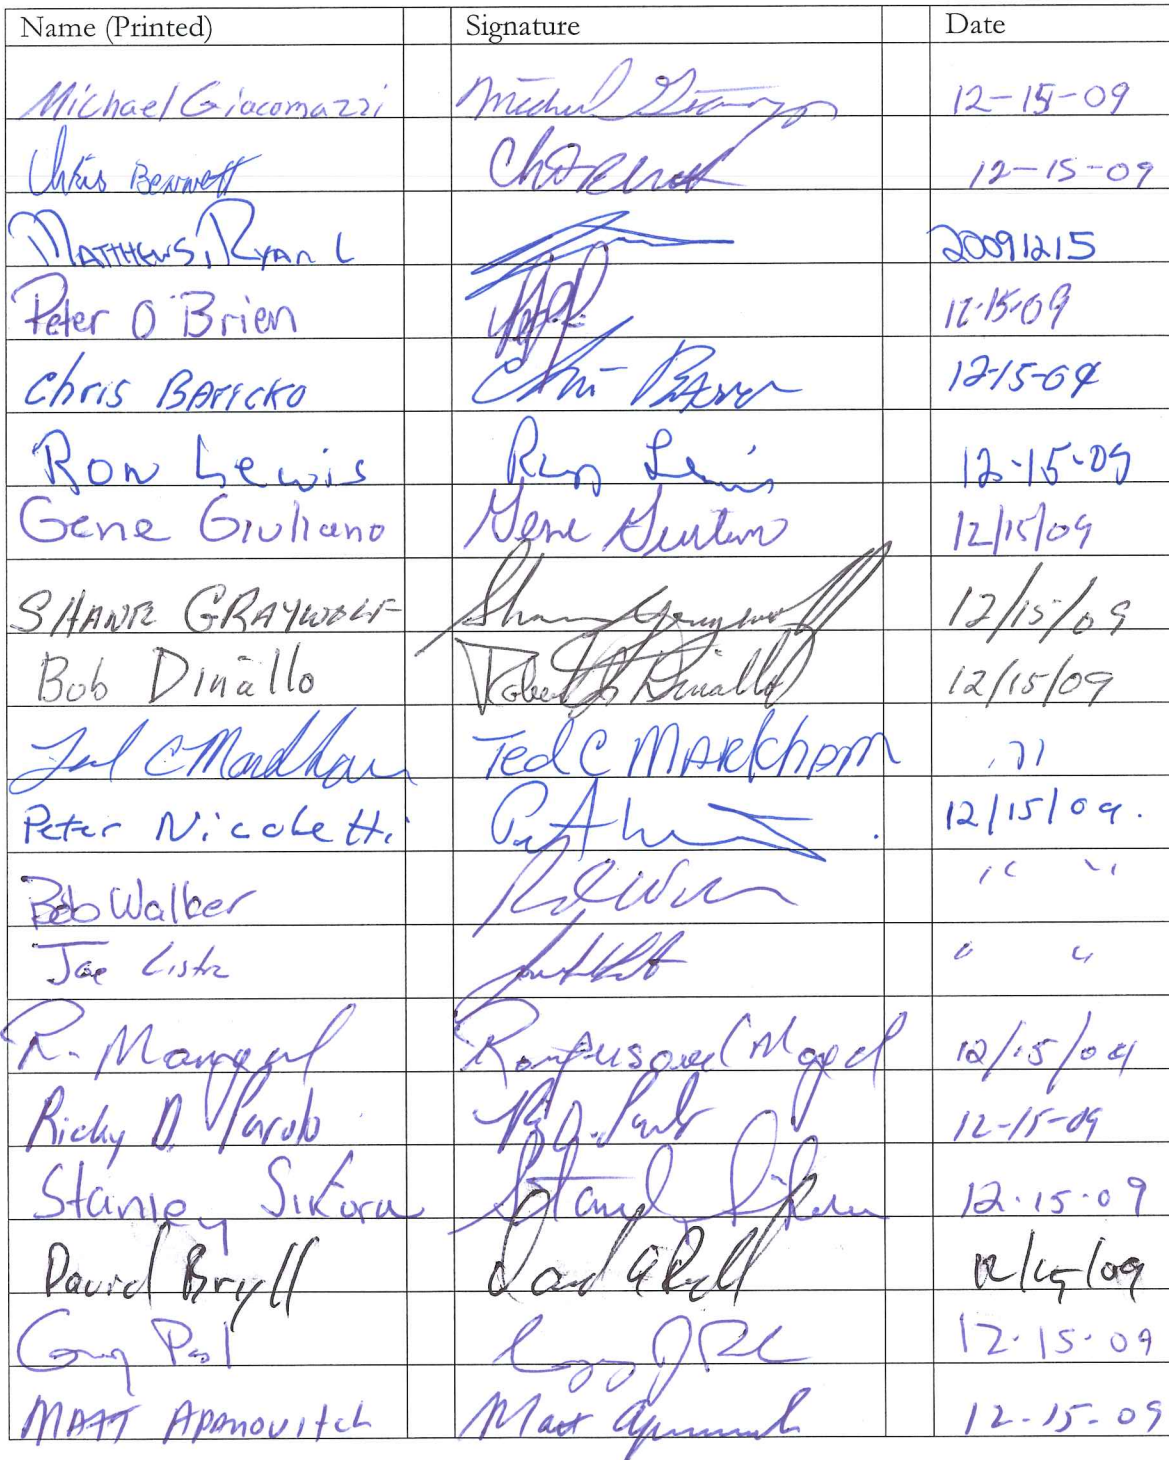 Name (Printed) Signature Date
Michael Giacomazzi Michael 12-15-09
Chris Bennett Chris Bennett 12-15-09
Matthews, Ryan L 20091215
Peter O'Brien 12-15-09
Chris Baticko Chris 12-15-09
Ron Lewis Ron Lewis 12-15-09
Gene Giuliano Gene Giuliano 12/15/09
SHANE GRAYWOLF Shane Graywolf 12/15/09
Bob Dinallo Robert Dinallo 12/15/09
Ted C Markham Ted C MARKham "
Peter Nicoletti 12/15/09.
Bob Walker " "
Joe " "
R. 12/15/09
Ricky D. 12-15-09
Stanley Sikora Stanley Sikora 12.15.09
David Bryll David Bryll 12/15/09
12.15.09
MATT APANOVITCH Matt 12-15-09